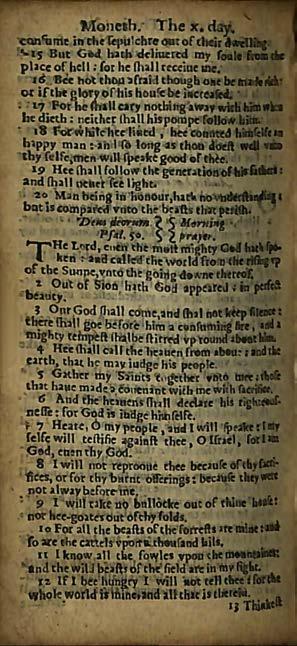 Moneth. The x. day.
consume in the sepulchre out of their dwelling.
15 But God hath delivered my soule from the
place of hell: for he shall receiue me.
16 Bee not thou afraid though one be made rich:
or if the glory of his house be increased.
17 For he shall cary nothing away with him when
he dieth: neither shall his pompe follow him.
18 For while hee liued, hee counted himselfe an
happy man: and so long as thou doest well vnto
thy selfe, men will speake good of thee.
19 Hee shall follow the generation of his fathers:
and shall neuer see light.
20 Man being in honour, hath no vnderstanding:
but is compared vnto the beasts that perish.
Deus deorum. Morning
Psal. 50. prayer.
THe Lord, euen the most mighty God hath spo-
ken: and called the world from the rising vp
of the Sunne, vnto the going downe thereof.
2 Out of Sion hath God appeared: in perfect
beauty.
3 Our God shall come, and shal not keep silence:
there shall goe before him a consuming fire, and a
mighty tempest shalbe stirred vp round about him.
4 Hee shall call the heauen from aboue: and the
earth, that he may iudge his people.
5 Gather my Saints together vnto mee: those
that haue made a couenant with me with sacrifice.
6 And the heauens shall declare his righteous-
nesse: for God is iudge himselfe.
7 Heare, O my people, and I will speake: I my
selfe will testifie against thee, O Israel, for I am
God, euen thy God.
8 I will not reprooue thee because of thy sacri-
fices, or for thy burnt offerings: because they were
not alway before me.
9 I will take no bullocke out of thine house:
nor hee-goates out of thy folds.
10 For all the beasts of the forrests are mine: and
so are the cattels vpon a thousand hils.
11 I know all the fowles vpon the mountaines:
and the wild beasts of the field are in my sight.
12 If I bee hungry I will not tell thee: for the
whole world is mine, and all that is therein.
13 Thinkest